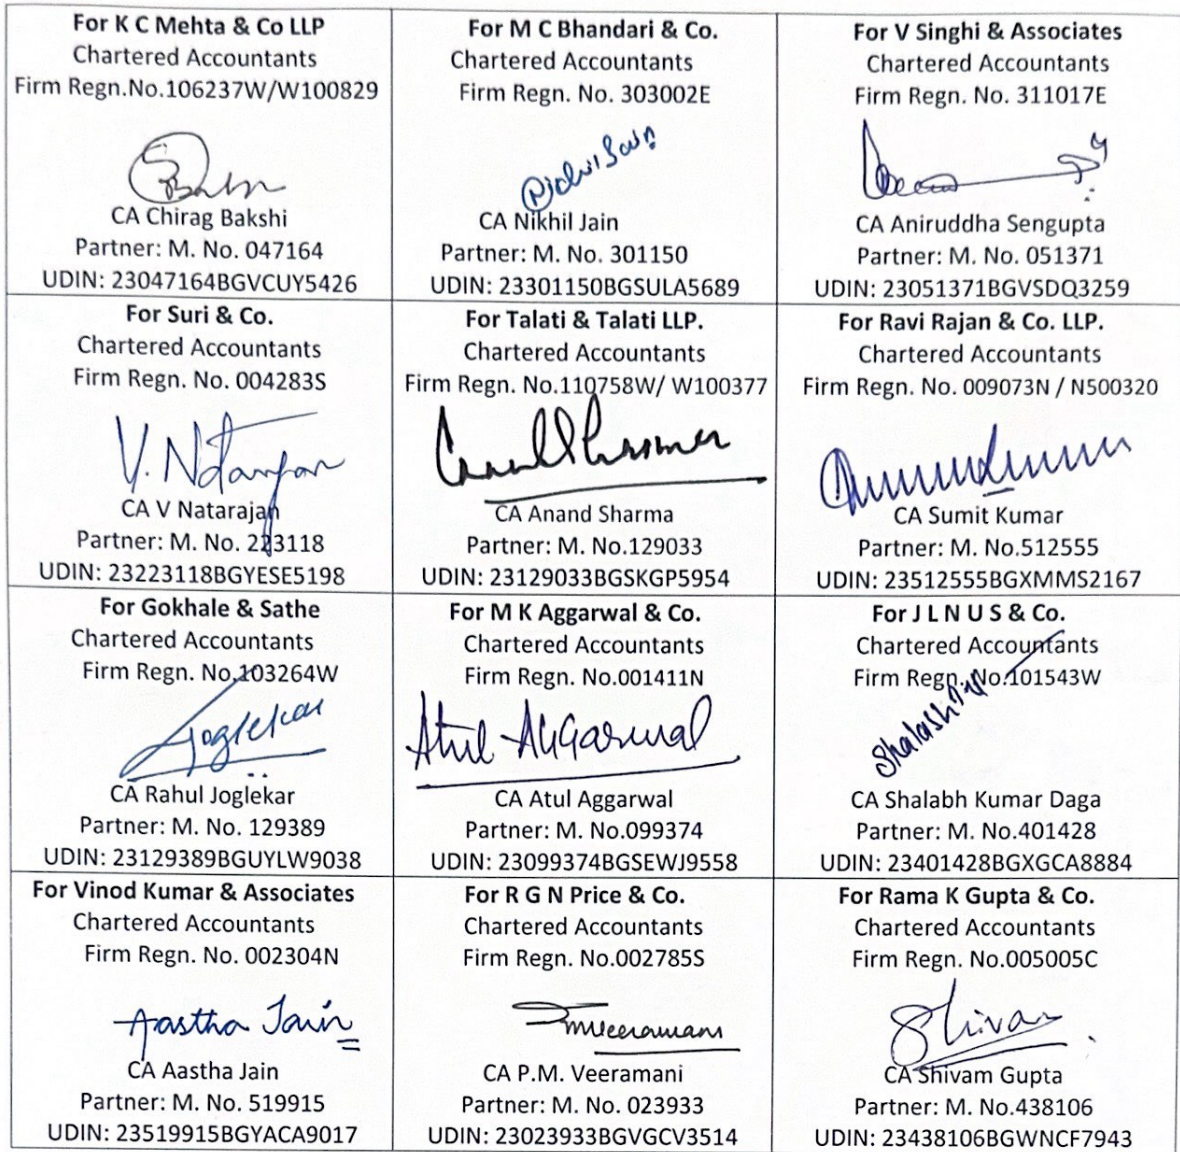 For K C Mehta & Co LLP
Chartered Accountants
Firm Regn.No.106237W/W100829
CA Chirag Bakshi
Partner: M. No. 047164
UDIN: 23047164BGVCUY5426
For M C Bhandari & Co.
Chartered Accountants
Firm Regn. No. 303002E
CA Nikhil Jain
Partner: M. No. 301150
UDIN: 23301150BGSULA5689
For V Singhi & Associates
Chartered Accountants
Firm Regn. No. 311017E
CA Aniruddha Sengupta
Partner: M. No. 051371
UDIN: 23051371BGVSDQ3259
For Suri & Co.
Chartered Accountants
Firm Regn. No. 004283S
V. Natarajan
CA V Natarajan
Partner: M. No. 223118
UDIN: 23223118BGYESE5198
For Talati & Talati LLP.
Chartered Accountants
Firm Regn. No.110758W/ W100377
CA Anand Sharma
Partner: M. No.129033
UDIN: 23129033BGSKGP5954
For Ravi Rajan & Co. LLP.
Chartered Accountants
Firm Regn. No. 009073N / N500320
CA Sumit Kumar
Partner: M. No.512555
UDIN: 23512555BGXMMS2167
For Gokhale & Sathe
Chartered Accountants
Firm Regn. No.103264W
Joglekar
CA Rahul Joglekar
Partner: M. No. 129389
UDIN: 23129389BGUYLW9038
For M K Aggarwal & Co.
Chartered Accountants
Firm Regn. No.001411N
Atul Aggarwal
CA Atul Aggarwal
Partner: M. No.099374
UDIN: 23099374BGSEWJ9558
For J L N U S & Co.
Chartered Accountants
Firm Regn. No.101543W
CA Shalabh Kumar Daga
Partner: M. No.401428
UDIN: 23401428BGXGCA8884
For Vinod Kumar & Associates
Chartered Accountants
Firm Regn. No. 002304N
Aastha Jain
CA Aastha Jain
Partner: M. No. 519915
UDIN: 23519915BGYACA9017
For R G N Price & Co.
Chartered Accountants
Firm Regn. No.002785S
CA P.M. Veeramani
Partner: M. No. 023933
UDIN: 23023933BGVGCV3514
For Rama K Gupta & Co.
Chartered Accountants
Firm Regn. No.005005C
Shivam
CA Shivam Gupta
Partner: M. No.438106
UDIN: 23438106BGWNCF7943